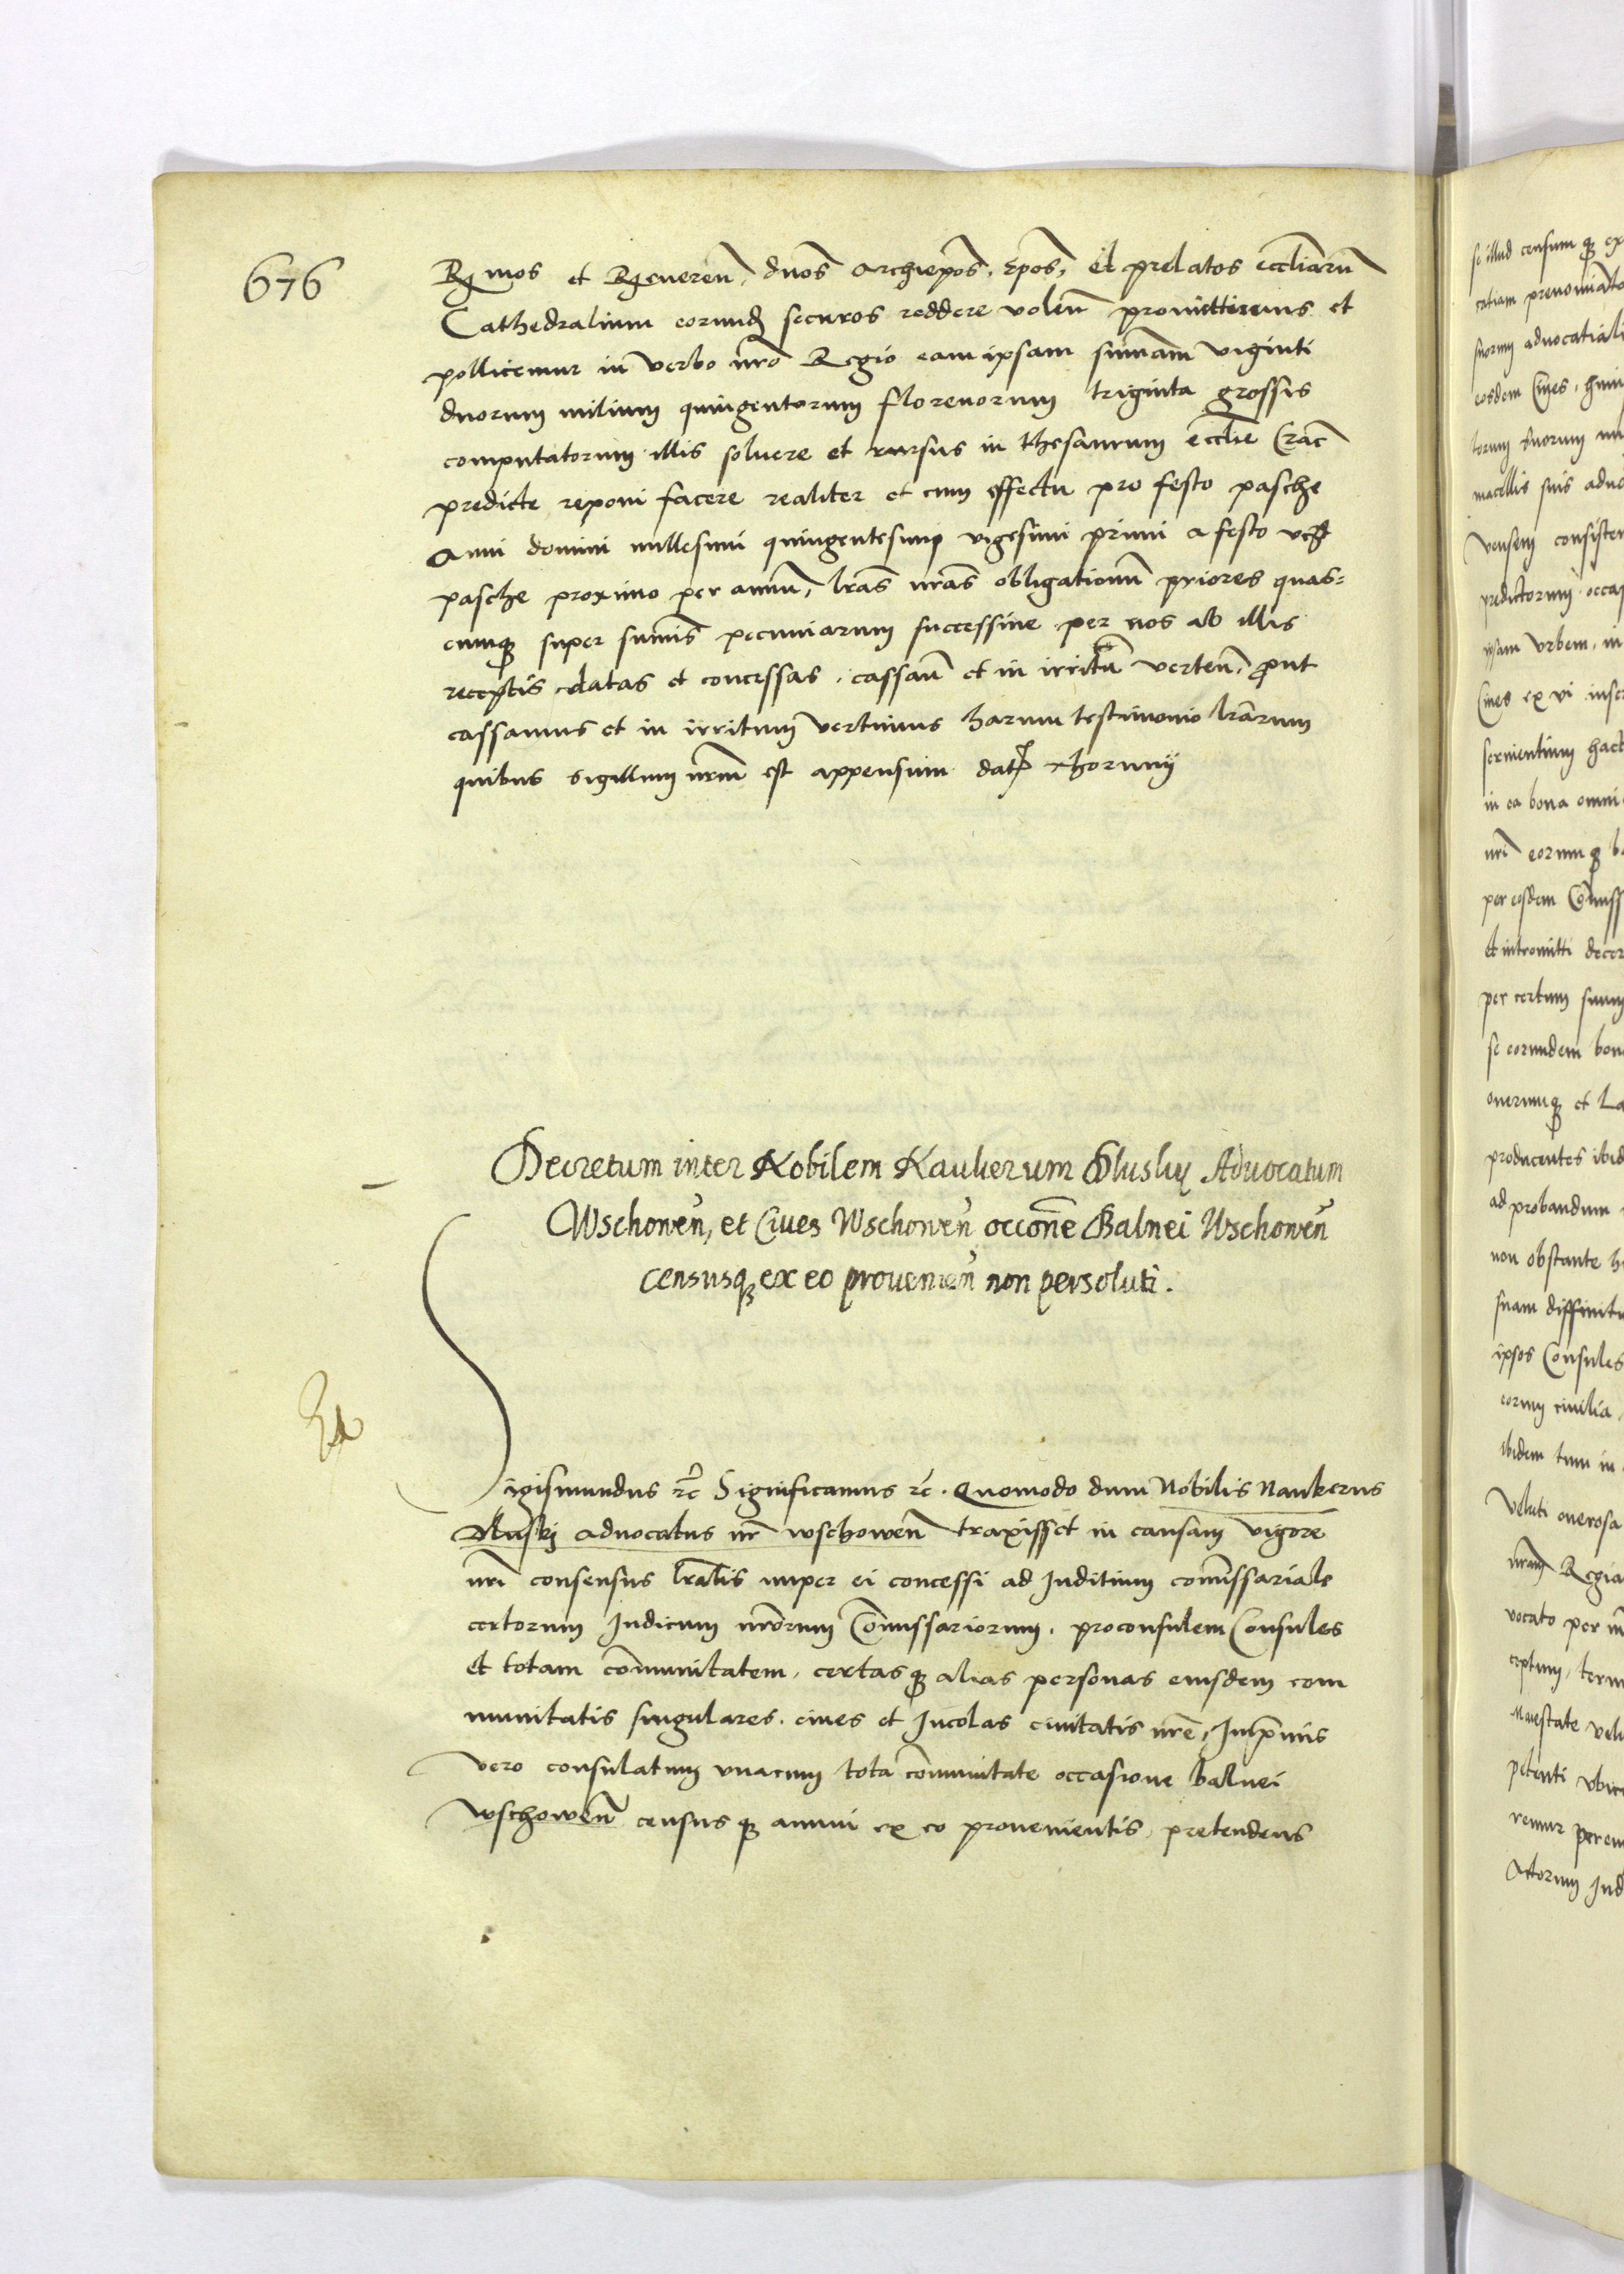 676
R mos et R everen, dnos archiepos, epos, et prelatos eccliaru
Cathedralium eorund securos reddere volen promittimus et
pollicemur in verbo nro Regio eam ipsam sumam viginti
duorum milium quingentorum florenorum triginta grossis
computatorum illis solvere et rursus in thesaurum ecclie Crac
predicte reponi facere realiter et cum effectu pro festo pasche
anni domini millesimi quingentesimi vigesimi primi a festo
pasche proximo per annu, lras nras obligationu priores quas=
cumq super sumis pecuniarum successive per nos ab illis
receptis datas et concessas, cassan et in irritu verten, put
cassamus et in irritum vertimus harum testimonio lrarum
quibus sigillum nrm est appensum dat Thorunij
Decretum inter Nobilem Naukerum Dlusky Advocatum
Wschowen, et Cives Wschowen occone Balnei Wschowen
censusq ex eo provenien non persoluti.
Sigismundus rc Significamus rc. Quomodo dum Nobilis Naukerus
Dlusky advocatus nr wschowen traxisset in causam vigore
nri consensus lralis nuper ei concessi ad Juditium comissariale
certorum Judicum nrorum Comissariorum, proconsulem Consules
et totam comunitatem, certasq alias personas eiusdem com
munitatis singulares, cives et Incolas civitatis nre, Inpmis
vero consulatum unacum tota comunitate occasione balnei
wschowen censusq annui ex eo provenientis, pretendens
se illud censum q ex
suorum advocatiali
eosdem Cives,
macellis suis advo
consisten
predictorum occas
ipsam urbem, in
Cives ex vi inscr
servientium hact
in ea bona omni
nri eorumq b
per eosdem Comiss
et intromitti decer
per certum
se eorundem bon
onerumq et La
producentes ibid
ad probandum
non obstante h
suam diffinit
ipsos Consules
eorum civilia
ibidem tum in
Veluti onerosa
nram Regia
vocato per